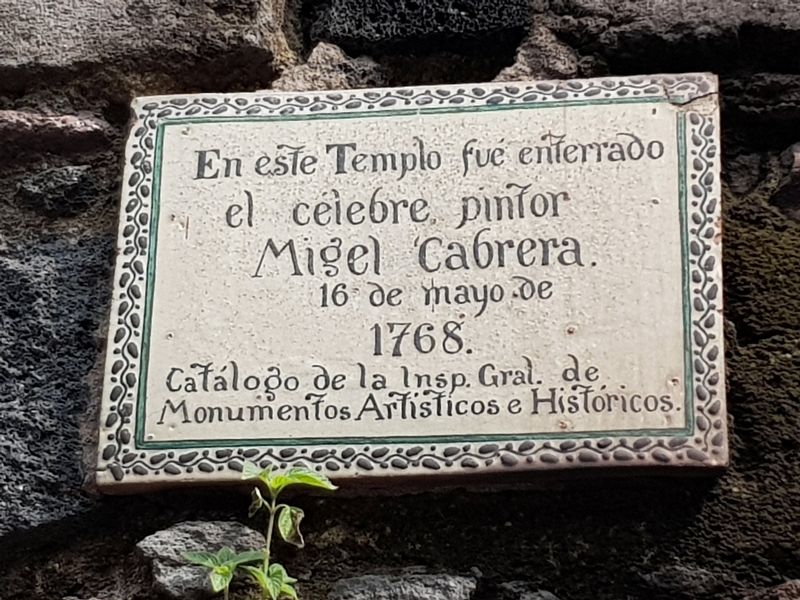 En este Templo fué enterrado
el célebre pintor
Migel Cabrera.
16 de mayo de
1768.
Catálogo de la Insp. Gral. de
Monumentos Artísticos e Históricos.